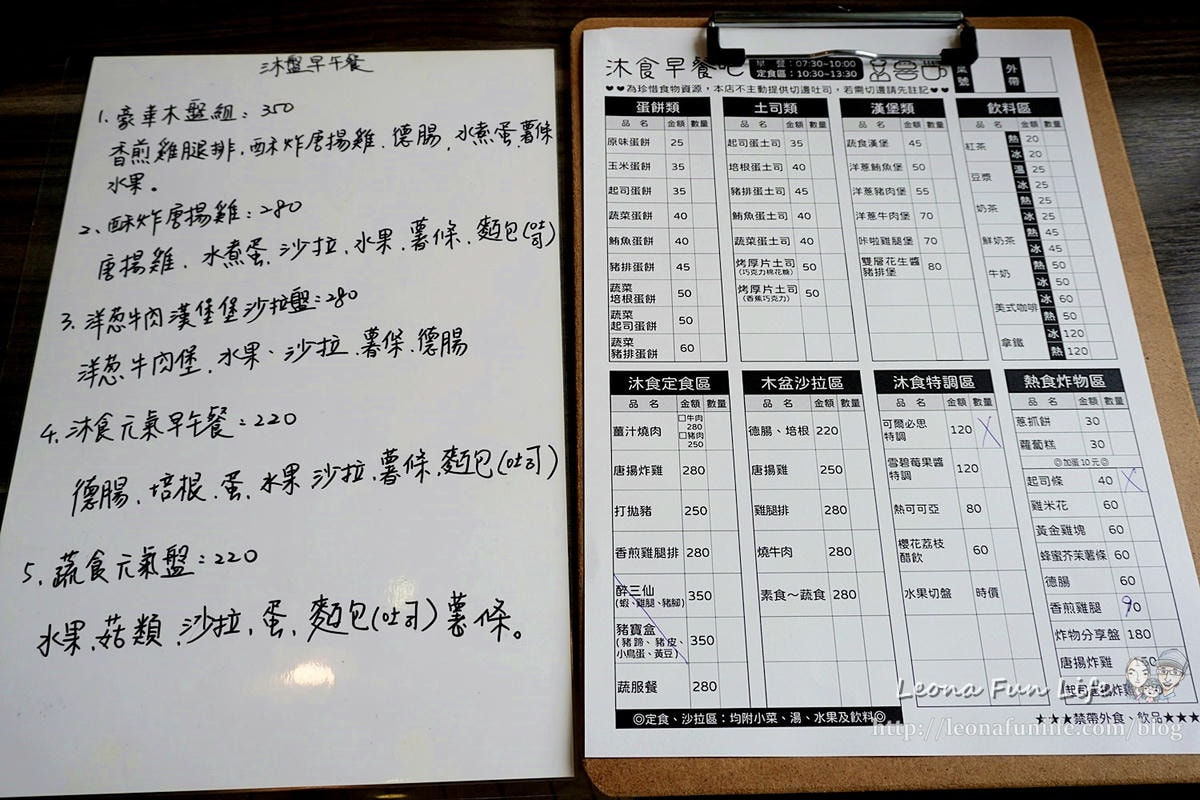 沐盤早午餐
1. 豪華木盤組：350
香煎雞腿排，酥炸唐揚雞、德腸，水煮蛋、薯條
水果。
2、酥炸唐揚雞：280
唐揚雞、水煮蛋、沙拉、水果、薯條、麵包(吐司)
3. 洋葱牛肉漢堡堡沙拉盤：280
洋葱牛肉堡、水果、沙拉、薯條、德腸
4. 沐食元氣早午餐：220
德腸、培根、蛋、水果 沙拉、薯條、麵包(吐司)
5. 蔬食元氣盤：220
水果、菇類、沙拉、蛋、麵包(吐司) 薯條。
沐食早餐吧
早 餐：07:30~10:00
定食區：10:30~13:30
桌號
外帶
♥♥為珍惜食物資源，本店不主動提供切邊吐司，若需切邊請先註記♥♥
蛋餅類
品 名 金額 數量
原味蛋餅 25
玉米蛋餅 35
起司蛋餅 35
蔬菜蛋餅 40
鮪魚蛋餅 40
豬排蛋餅 45
蔬菜
培根蛋餅 50
蔬菜
起司蛋餅 50
蔬菜
豬排蛋餅 60
土司類
品 名 金額 數量
起司蛋土司 35
培根蛋土司 40
豬排蛋土司 45
鮪魚蛋土司 40
蔬菜蛋土司 40
烤厚片土司 50
(巧克力棉花糖)
烤厚片土司 50
(香蕉巧克力)
漢堡類
品 名 金額 數量
蔬食漢堡 45
洋蔥鮪魚堡 50
洋蔥豬肉堡 55
洋蔥牛肉堡 70
咔啦雞腿堡 70
雙層花生醬
豬排堡 80
飲料區
品 名 金額 數量
紅茶 熱 20
冰 20
豆漿 溫 25
冰 25
奶茶 熱 25
冰 25
鮮奶茶 熱 45
冰 45
牛奶 熱 50
冰 50
美式咖啡 冰 60
熱 50
拿鐵 冰 120
熱 120
沐食定食區
品 名 金額 數量
薑汁燒肉 □牛肉 280 □豬肉 250
唐揚炸雞 280
打拋豬 250
香煎雞腿排 280
醉三仙 350
(蝦、雞腿、豬腳)
豬寶盒 350
(豬蹄、豬皮、
小鳥蛋、黃豆)
蔬服餐 280
木盆沙拉區
品 名 金額 數量
德腸、培根 220
唐揚雞 250
雞腿排 280
燒牛肉 280
素食～蔬食 280
沐食特調區
品 名 金額 數量
可爾必思
特調 120 X
雪碧莓果醬
特調 120
熱可可亞 80
櫻花荔枝
醋飲 60
水果切盤 時價
熱食炸物區
品 名 金額 數量
蔥抓餅 30
蘿蔔糕 30
◎加蛋10元◎
起司條 40 X
雞米花 60
黃金雞塊 60
蜂蜜芥茉薯條 60
德腸 60
香煎雞腿 90
炸物分享盤 180
唐揚炸雞
起司唐揚炸雞
◎定食、沙拉區：均附小菜、湯、水果及飲料◎
★★★禁帶外食、飲品★★★
Leona Fun Life
http://leonafunlife.com/blog